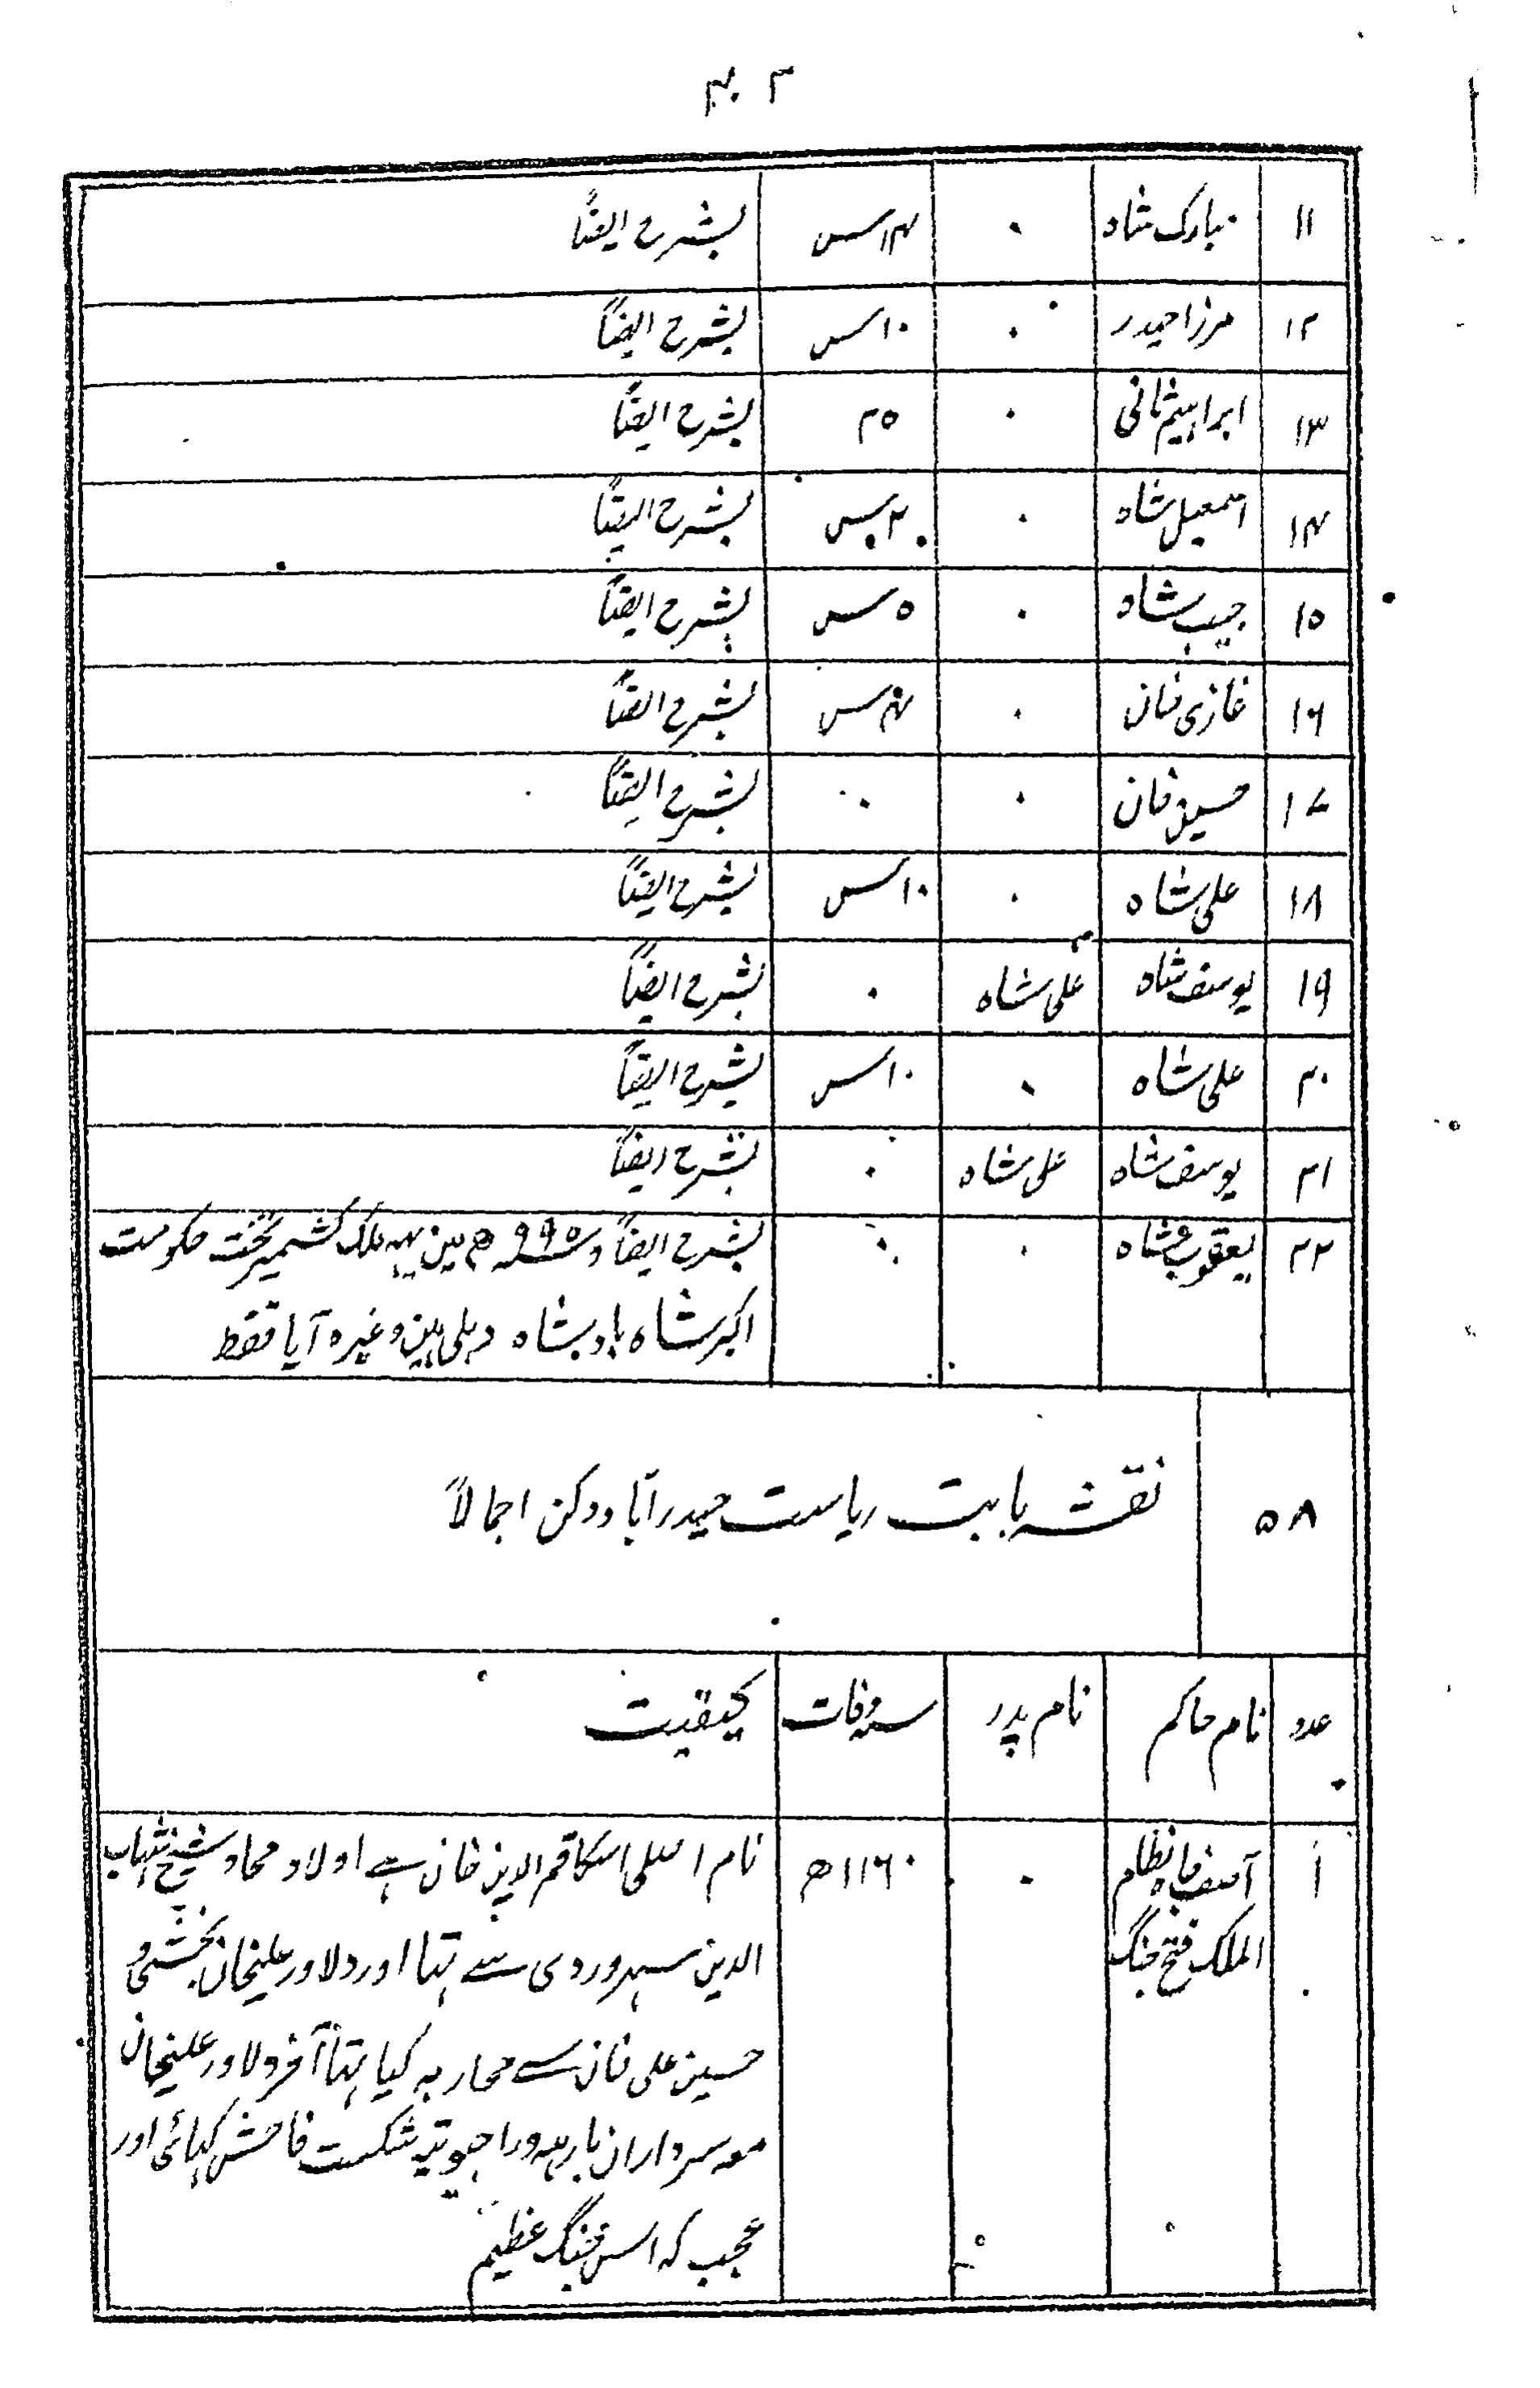 ۳۰۲
۱۱ مبارک شاہ ۰ ۱۴س بشرح ایضاً
۱۲ مرزا حیدر ۰ ۱۰س بشرح ایضاً
۱۳ ابراہیم ثانی ۰ ۲۵ بشرح ایضاً
۱۴ اسمعیل شاہ ۰ ۲س بشرح ایضاً
۱۵ حبیب شاہ ۰ ۵س بشرح ایضاً
۱۶ غازی خان ۰ ۴س بشرح ایضاً
۱۷ حسین خان ۰ ۰ بشرح ایضاً
۱۸ علی شاہ ۰ ۱۰س بشرح ایضاً
۱۹ یوسف شاہ علی شاہ ۰ بشرح ایضاً
۲۰ علی شاہ ۰ ۱۰س بشرح ایضاً
۲۱ یوسف شاہ علی شاہ ۰ بشرح ایضاً
۲۲ یعقوب شاہ ۰ ۰ بشرح ایضاً و ۹۹۵ھ مین یہہ ملک کشمیر تخت حکومت
اکبر شاہ بادشاہ دہلی ہین وغیرہ آیا فقط
۵۸ نقشہ بابت ریاست حیدرآباد دکن اجمالاً
عدد نام حاکم نام پدر سنہ وفات کیفیت
۱ آصف جاہ نظام ۰ ۱۱۶۰ھ نام اصلی اسکا قمر الدین خان ہے اولاد شیخ شہاب
الملک فتح جنگ الدین سہروردی سے تہا اور دلاور علیخان بخشی و
حسین علی خان سے محاربہ کیا تہا آخر دلاور علیخان
معہ سرداران بارہہ و راجپوتیہ شکست فاحش کہائی اور
عجب کہ اس جنگ عظیم